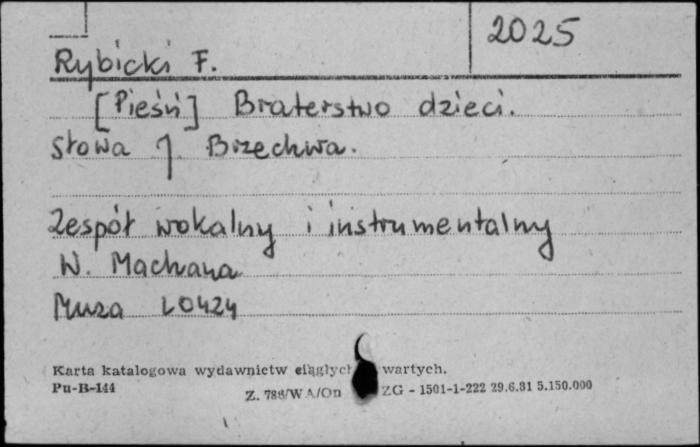 2025
Rybicki F.
[Pieśń] Braterstwo dzieci.
Słowa J. Brzechwa.
Zespół wokalny i instrumentalny
W. Machana
Muza L0424
Karta katalogowa wydawnictw ciągłych wartych.
Pu-B-144
Z. 786/WA/On ZG - 1501-1-222 29.6.81 5.150.000